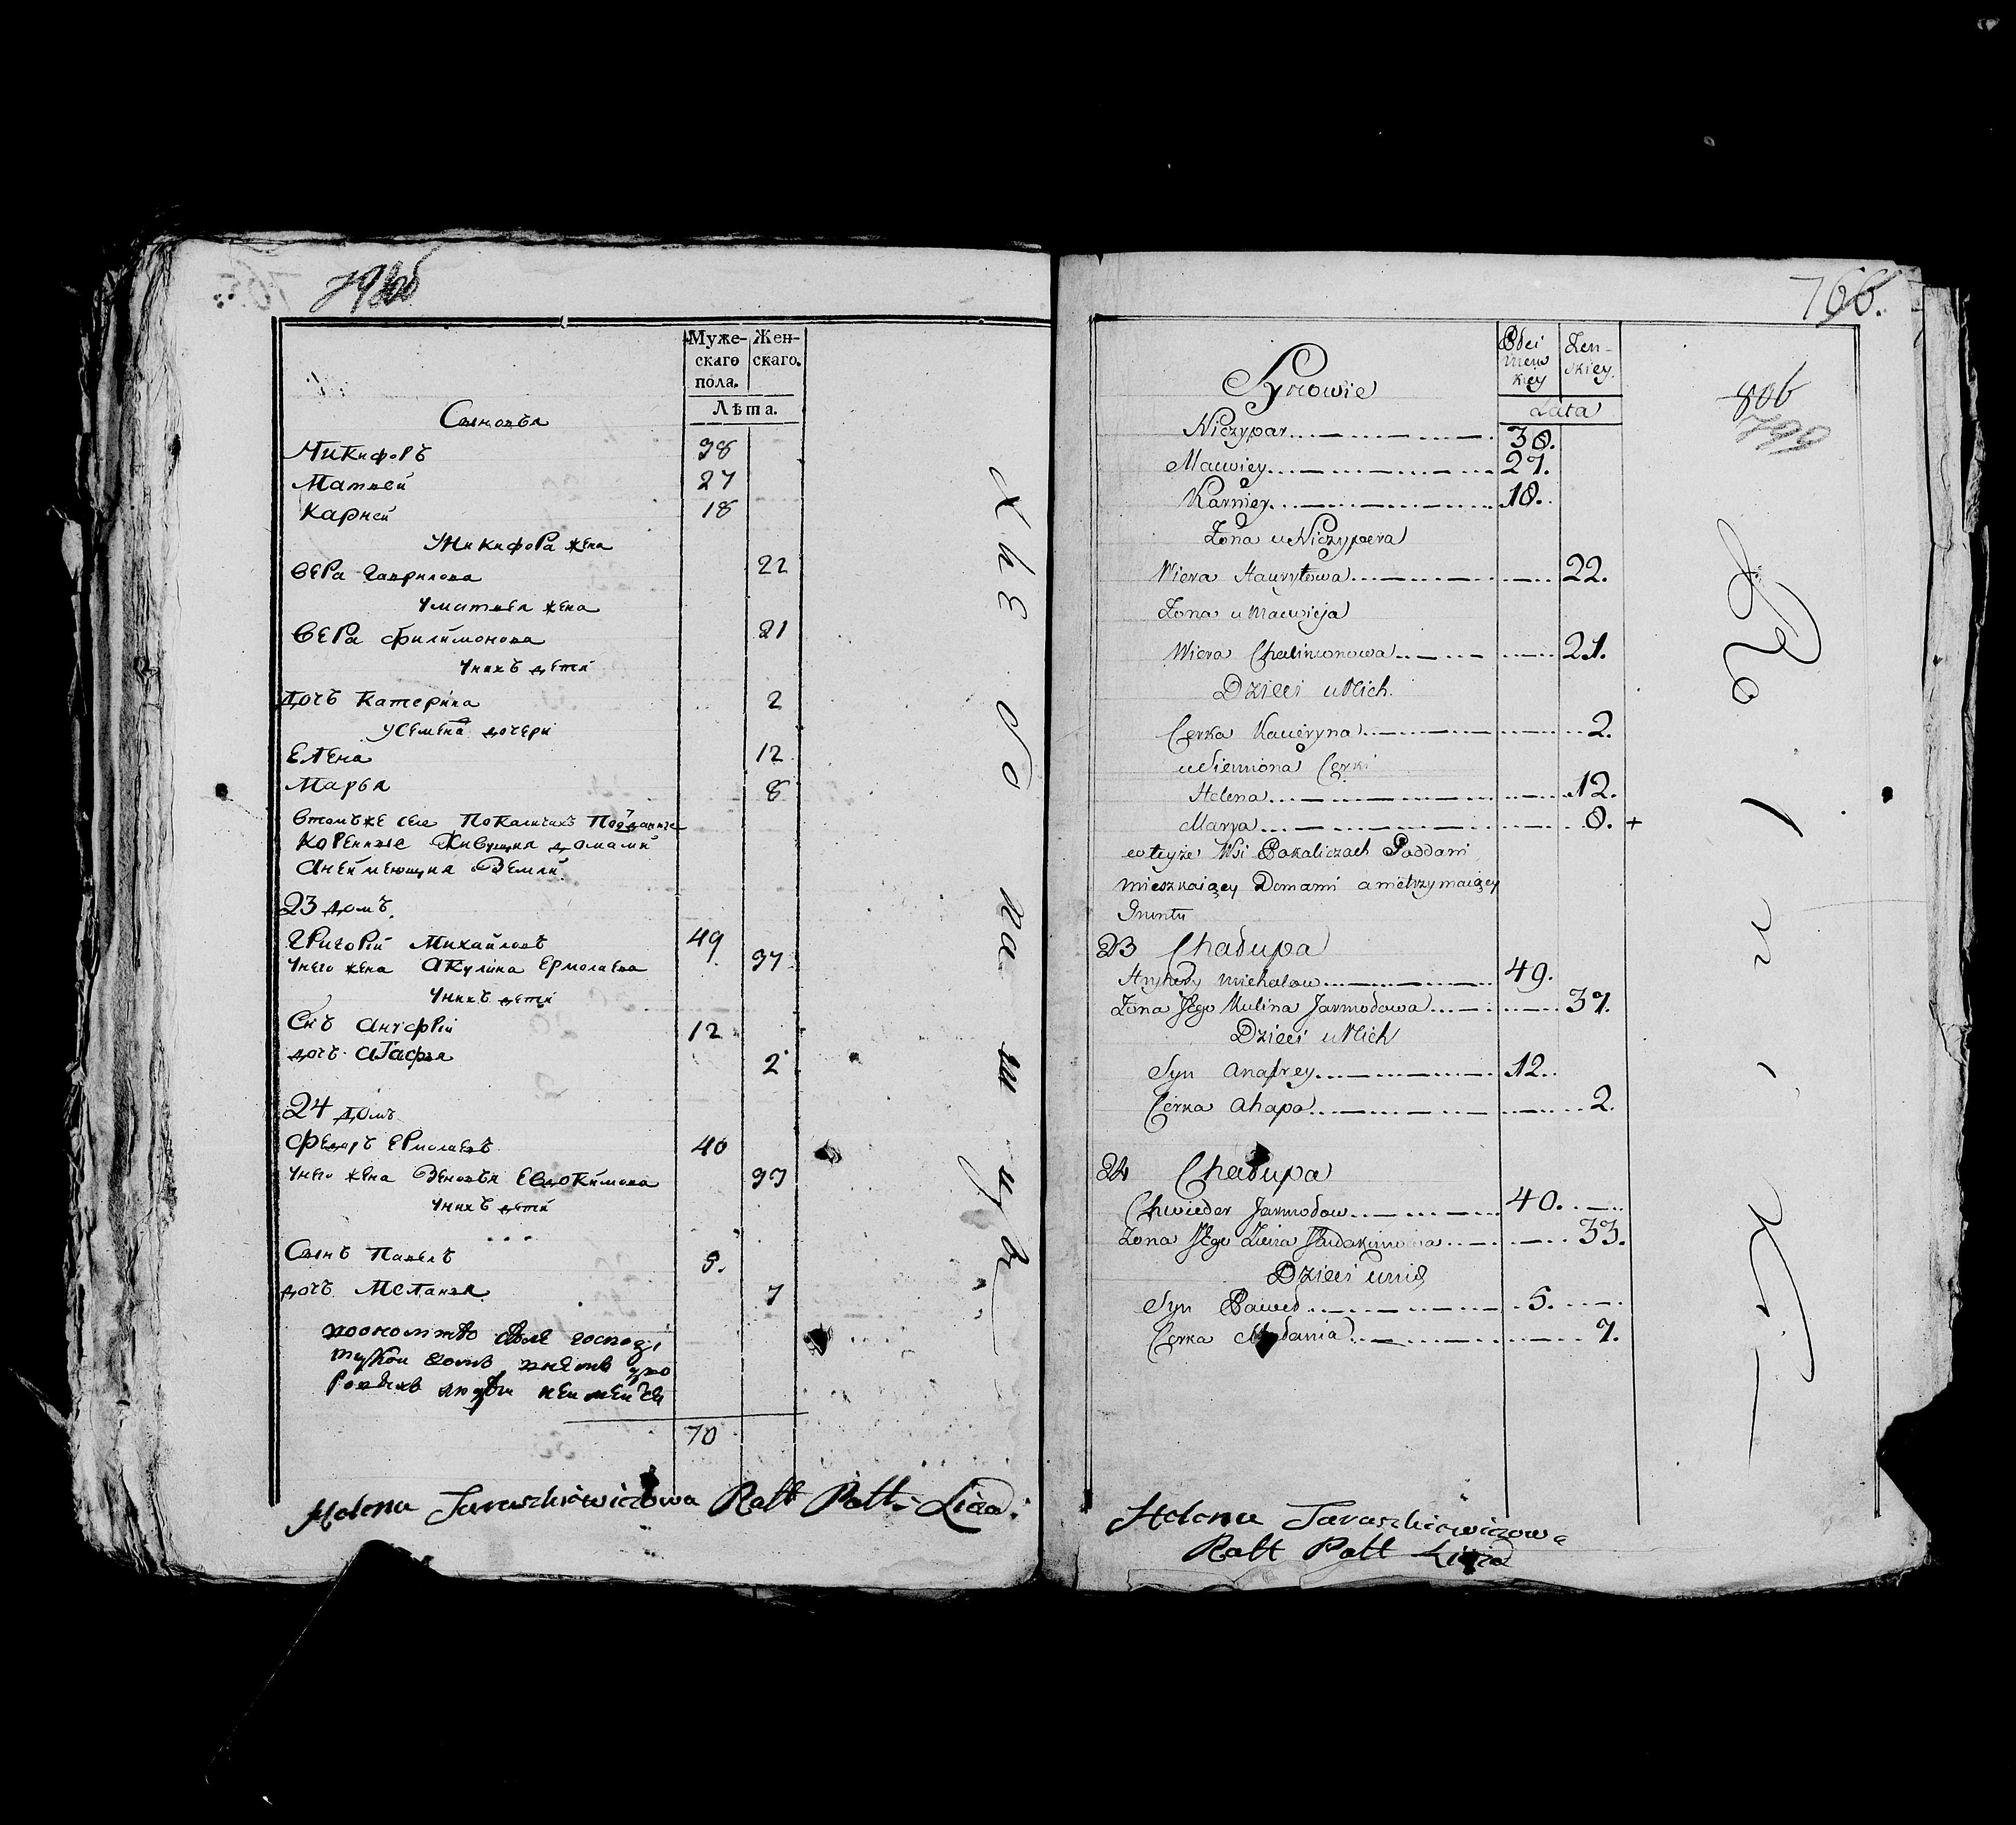 Муже-
скаго
пола.
Жен-
скаго.
Лѣта.
Сыновья
Микифоръ 38
Матвей 27
Карней 18
У Микифора жена
Вера Гаврилова 22
У Матвея жена
Вера Филимонова 21
У нихъ дети
Дочь Катерина 2
У Семена дочери
Елена 12
Марья 8
Втомъже селе Покаличахъ Подданые
Коренные Живущия домами
Анеимеющия Земли
23 домъ
Григорий Михайловъ 49
Унего жена Акулина Ермолаева 37
У нихъ дети
Снъ Анүфрий 12
дочь Агафья 2
24 домъ
Федоръ Ермолаевъ 40
Унего жена Зеновья Евдокимова 33
У нихъ дети
Сынъ Павелъ 5.
дочь Меланья 7
70
Helena Taraszkiewiczowa Rott Pott. Lidd.
766.
806
799
Synowie
Żen-
skiey.
Lata
Niczypar 38.
Maciwiey 27.
Karniey 18.
Żona u Niczypera
Wiera Hauryłowa 22.
Żona u Maciwieja
Wiera Chalimonowa 21.
Dzieci u Nich.
Cerka Kacieryna 2.
u Siemiona Cerki
Helena 12.
Marya 8. +
w teyże Wsi Pokaliczach Poddani
mieszkaiący Domami a nietrzymaiący
Gruntu
23 Chałupa
Hryhory Michałow 49.
Żona Jego Kulina Jarmołowa 37.
Dzieci u Nich
Syn Anafrey 12.
Cerka Ahapa 2.
24 Chałupa
Chwieder Jarmołow 40.
Żona Jego Zieńa Jaudakimowa 33.
Dzieci u nich
Syn Paweł 5.
Cerka Mełania 7.
Helena Taraszkiewiczowa
Rott Pott Lidd